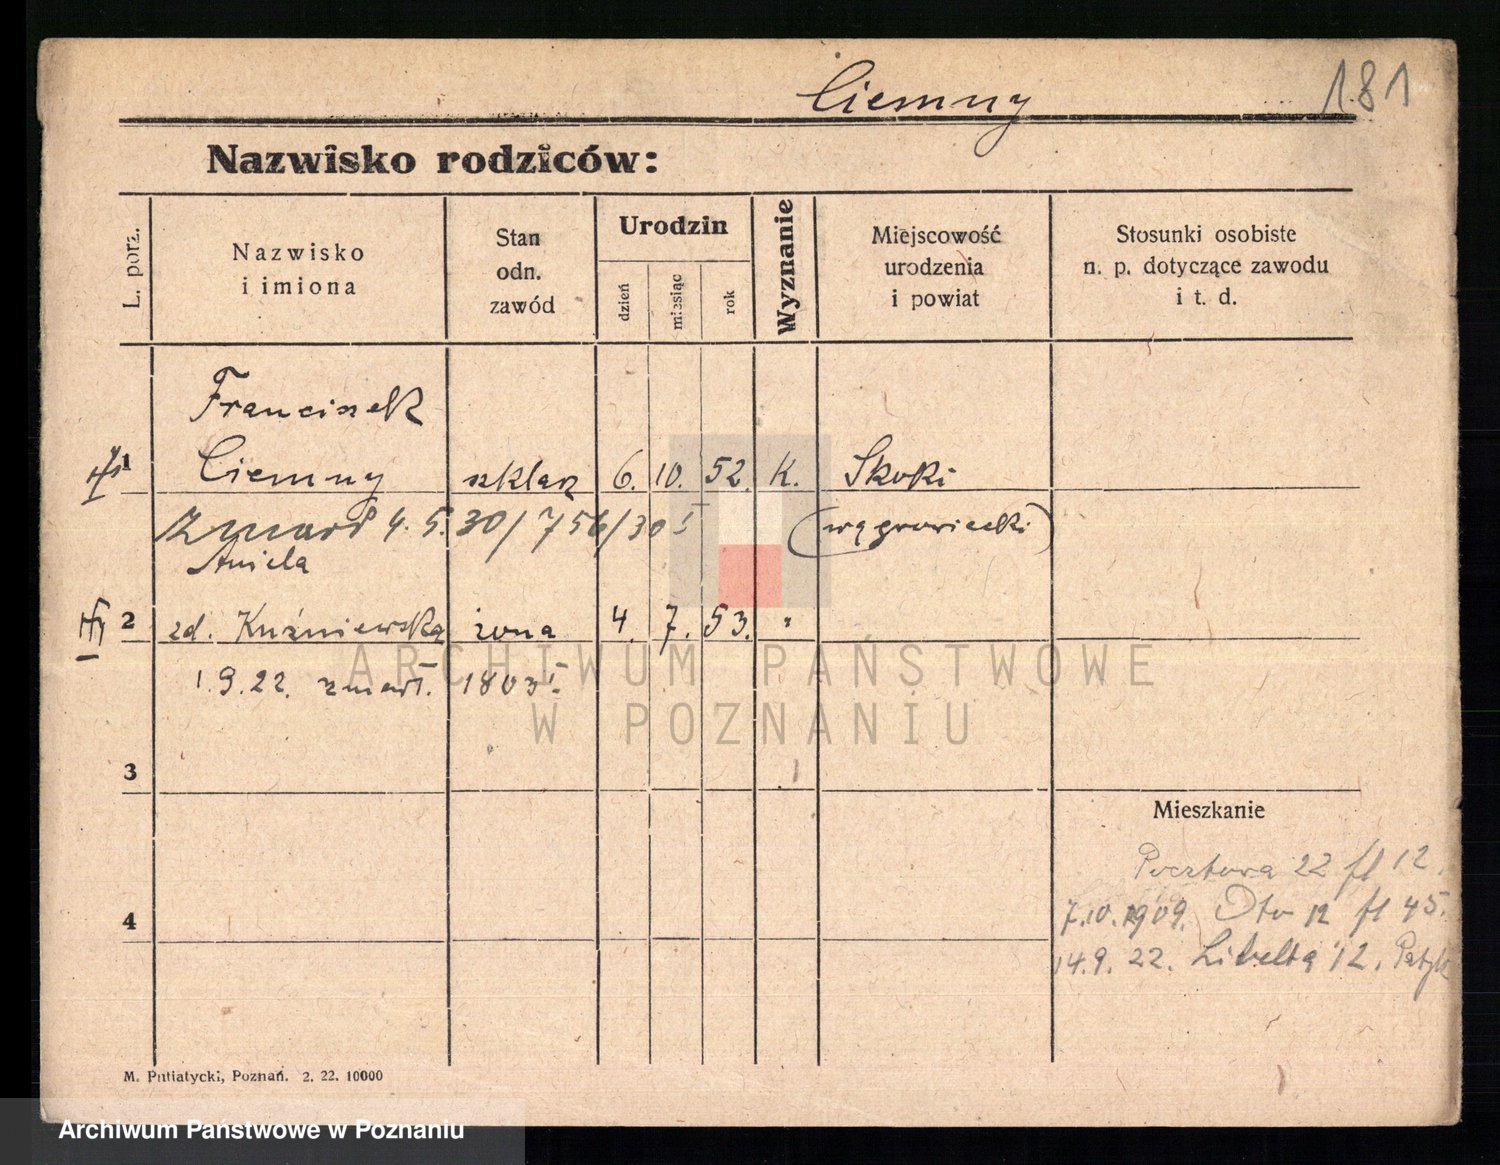 Ciemny 181
Nazwisko rodziców:
L. porz.
Nazwisko
i imiona
Stan
odn.
zawód
Urodzin
dzień
miesiąc
rok
Wyznanie
Miejscowość
urodzenia
i powiat
Stosunki osobiste
n. p. dotyczące zawodu
i t. d.
Franciszek
1 Ciemny szklarz 6. 10. 52. K. Skoki
Zmarł 4. 5. 30/756/30 I (wągrowiecki)
Aniela
2 zd. Kuźniewska żona 4. 7. 53. "
1.9.22. zmarł. 1803 I.
ARCHIWUM PAŃSTWOWE
W POZNANIU
3
Mieszkanie
Pocztowa 22 fl 12.
7.10.1909. Dto 12 fl 45.
4
14.9. 22. Libelta 12.
M. Putiatycki, Poznań. 2. 22. 10000
Archiwum Państwowe w Poznaniu